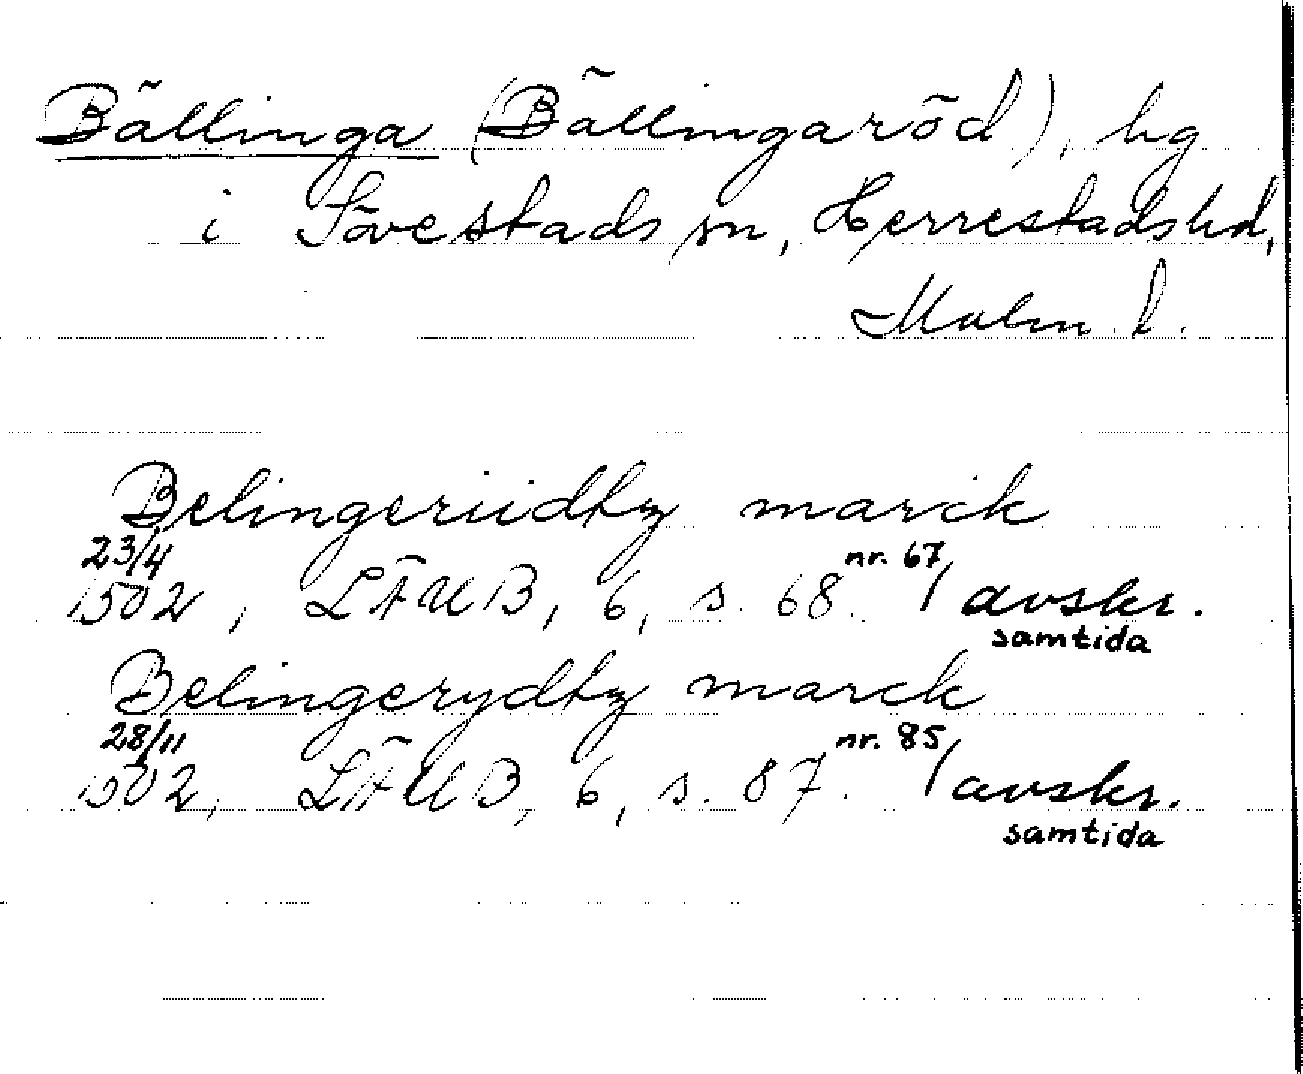 Bällinga (Bällingaröd), hg
i Sövestads sn, Herrestads hd,
Malm. l.
Belingeriidtz marck
23/4 1502, LÄUB, 6, s. 68. nr. 67 / avskr. samtida
Belingerydtz marck
28/11 1502, LÄUB, 6, s. 87. nr. 85 / avskr. samtida